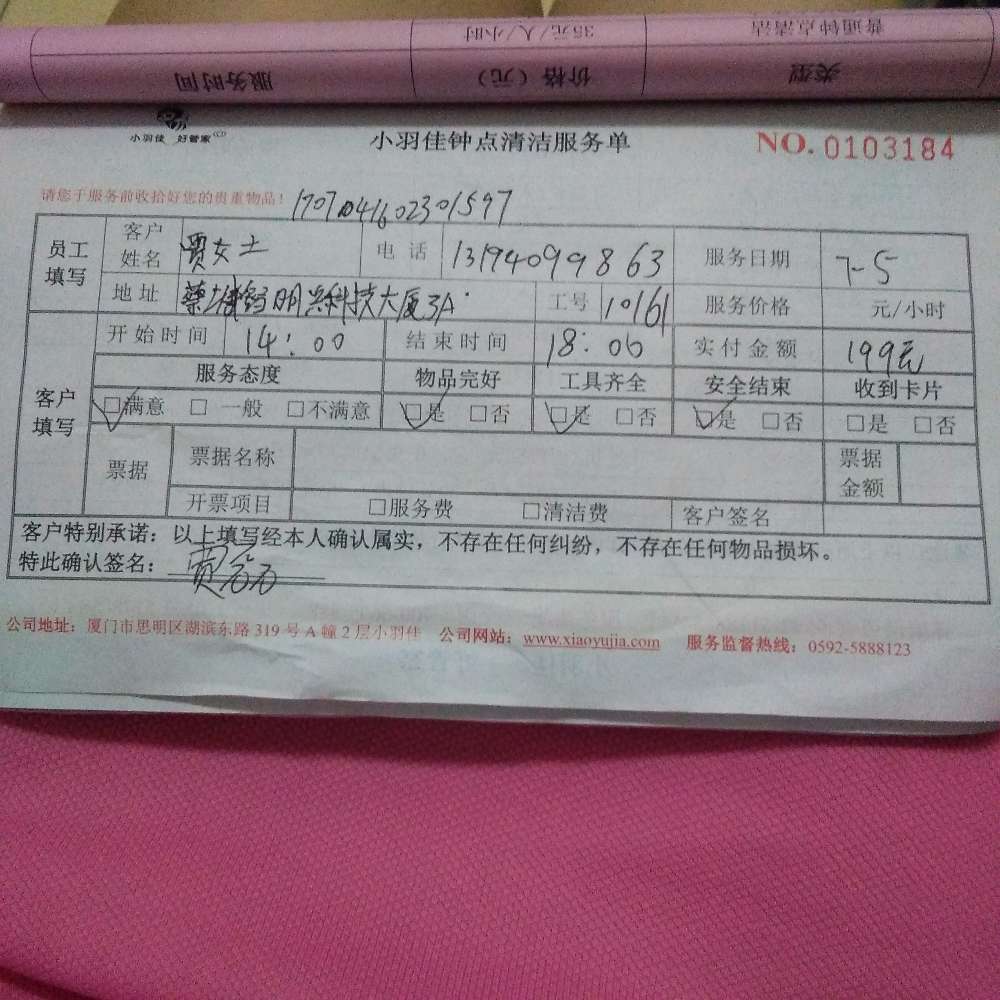 普通钟点清洁 35元/人/小时
类型 价格（元） 服务时间
小羽佳 好管家
小羽佳钟点清洁服务单
NO. 0103184
请您于服务前收拾好您的贵重物品！
1707041602301597
员工填写 客户姓名 贾女士 电话 13194099863 服务日期 7-5
地址 明兴科技大厦3A 工号 10161 服务价格 元/小时
客户填写 开始时间 14：00 结束时间 18：00 实付金额 199元
服务态度 物品完好 工具齐全 安全结束 收到卡片
☑满意 □一般 □不满意 ☑是 □否 ☑是 □否 ☑是 □否 □是 □否
票据 票据名称 票据金额
开票项目 □服务费 □清洁费 客户签名
客户特别承诺：以上填写经本人确认属实，不存在任何纠纷，不存在任何物品损坏。
特此确认签名：贾
公司地址：厦门市思明区湖滨东路 319 号 A 幢 2 层小羽佳 公司网站：www.xiaoyujia.com 服务监督热线：0592-5888123